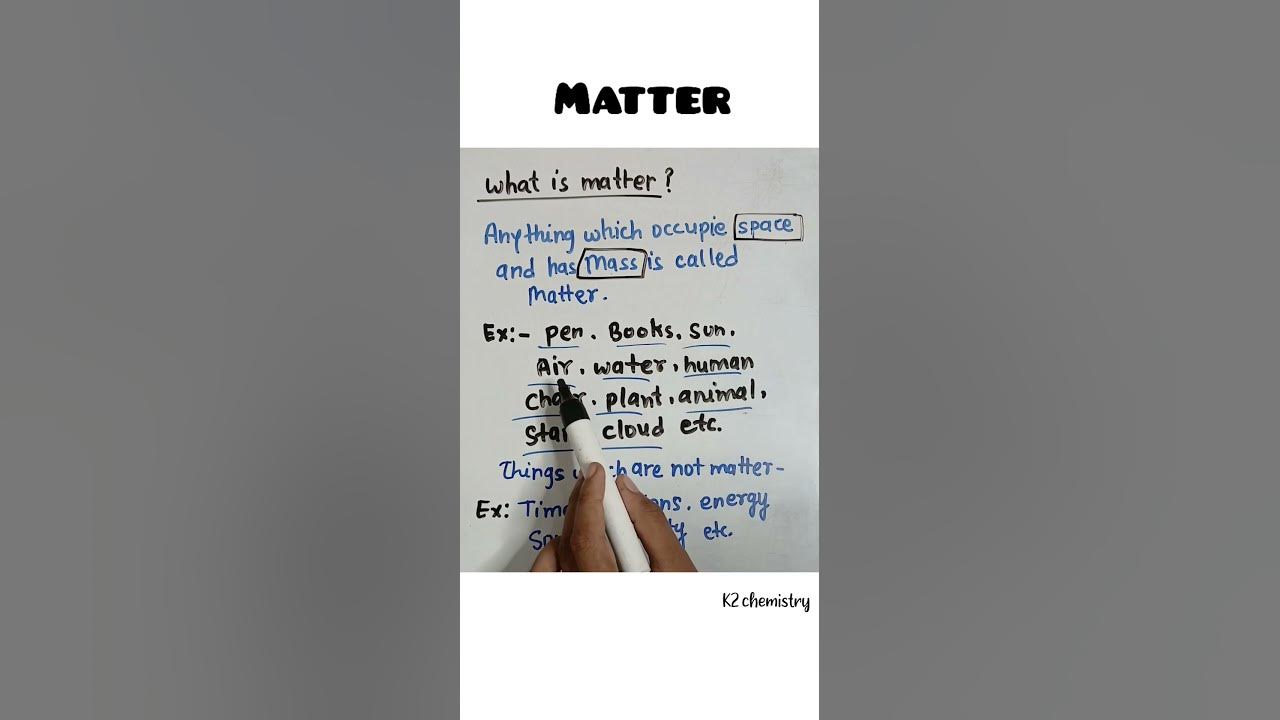 MATTER
what is matter?
Anything which occupie space
and has Mass is called
Matter.
Ex:- pen. Books. Sun.
Air. water, human
plant, animal,
cloud etc.
Things are not matter-
Ex: energy
etc.
K2 chemistry